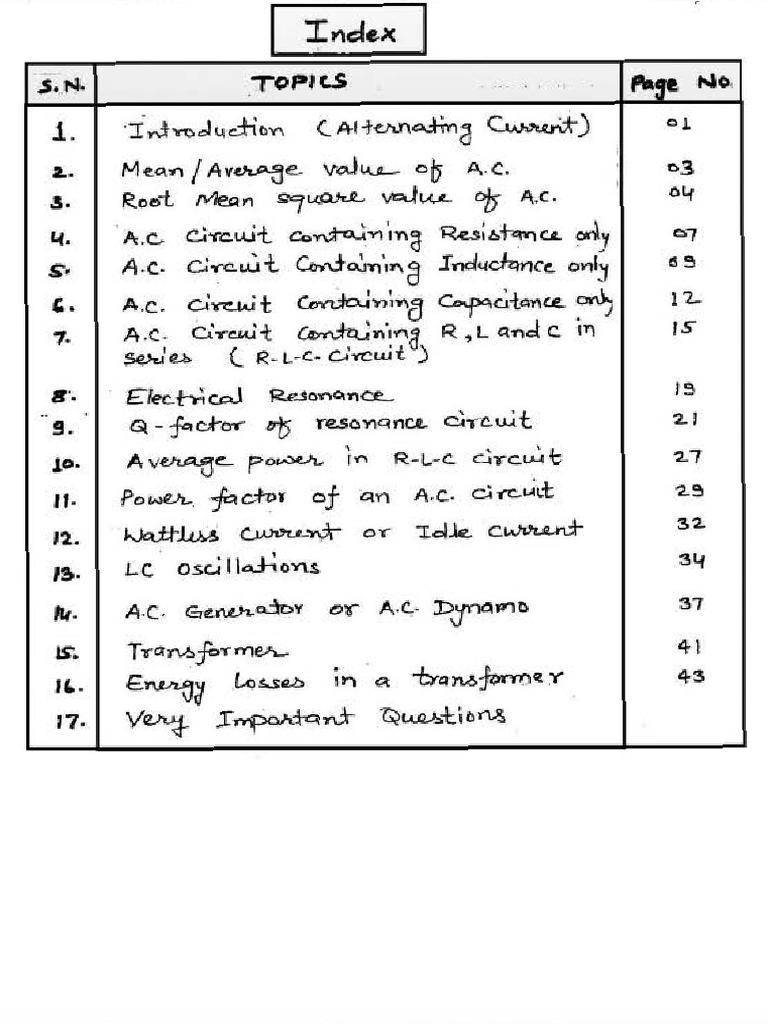 Index
S.N. TOPICS Page No
1. Introduction (Alternating Current) 01
2. Mean/Average value of A.C. 03
3. Root Mean square value of A.C. 04
4. A.C. Circuit containing Resistance only 07
5. A.C. Circuit Containing Inductance only 09
6. A.C. Circuit Containing Capacitance only 12
7. A.C. Circuit Containing R, L and C in 15
series (R-L-C- Circuit)
8. Electrical Resonance 19
9. Q-factor of resonance circuit 21
10. Average power in R-L-C circuit 27
11. Power factor of an A.C. circuit 29
12. Wattless Current or Idle current 32
13. LC oscillations 34
14. A.C. Generator or A.C. Dynamo 37
15. Transformer 41
16. Energy Losses in a transformer 43
17. Very Important Questions